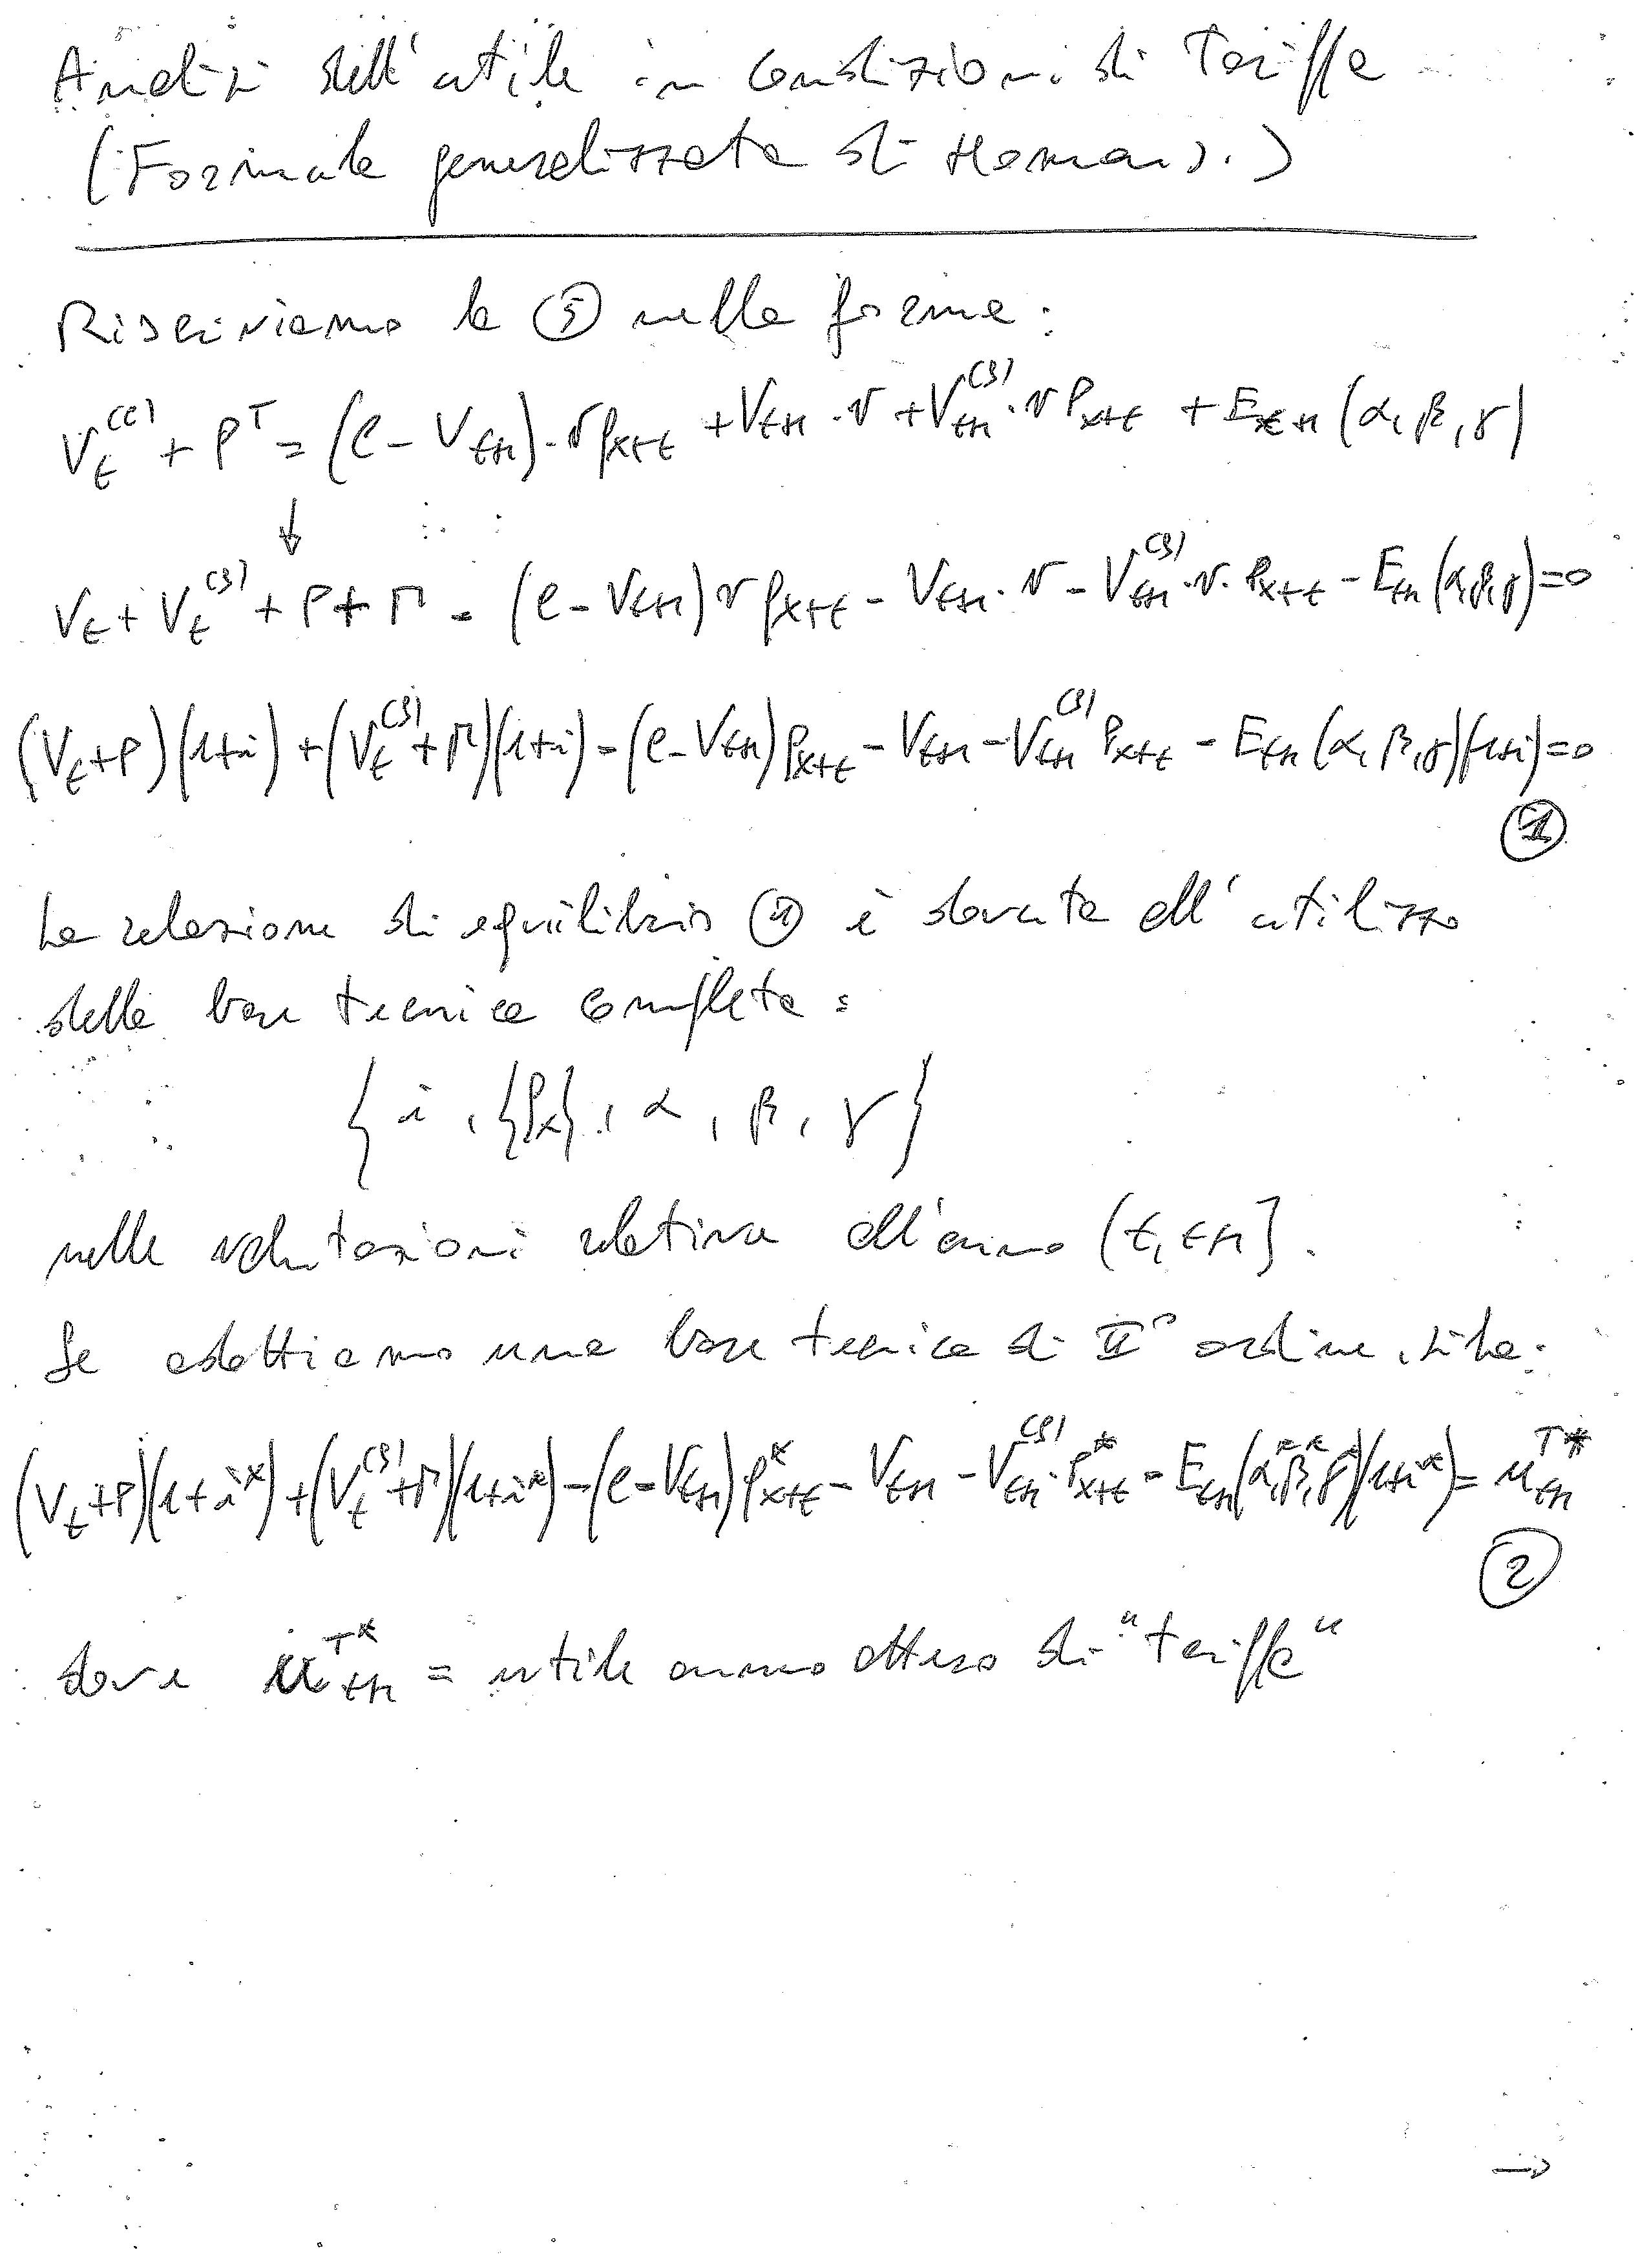 Analisi dell'utile in condizioni di Tariffa
(Formula generalizzata di Homans.)
Riscriviamo la ⑤ nella forma:
V_t^(c) + P^T = (C - V_{t+1})·v q_{x+t} + V_{t+1}·v + V_{t+1}^(S)·v P_{x+t} + E_{t+1}(α, β, γ)
↓
V_t + V_t^(S) + P + Γ - (C - V_{t+1}) v q_{x+t} - V_{t+1}·v - V_{t+1}^(S)·v·P_{x+t} - E_{t+1}(α,β,γ) = 0
(V_t + P)(1+i) + (V_t^(S) + Γ)(1+i) - (C - V_{t+1}) q_{x+t} - V_{t+1} - V_{t+1}^(S) P_{x+t} - E_{t+1}(α, β, γ)(1+i) = 0
①
La relazione di equilibrio ① è dovuta all'utilizzo
della base tecnica completa:
{ i , {q_x} , α , β , γ }
nelle valutazioni relative all'anno (t, t+1].
Se adottiamo una base tecnica di II° ordine, si ha:
(V_t + P)(1+i*) + (V_t^(S) + Γ)(1+i*) - (C - V_{t+1}) q*_{x+t} - V_{t+1} - V_{t+1}^(S)·P*_{x+t} - E_{t+1}(α*,β*,γ*)(1+i*) = u_{t+1}^{T*}
②
dove u_{t+1}^{T*} = utile annuo atteso di "tariffa"
→